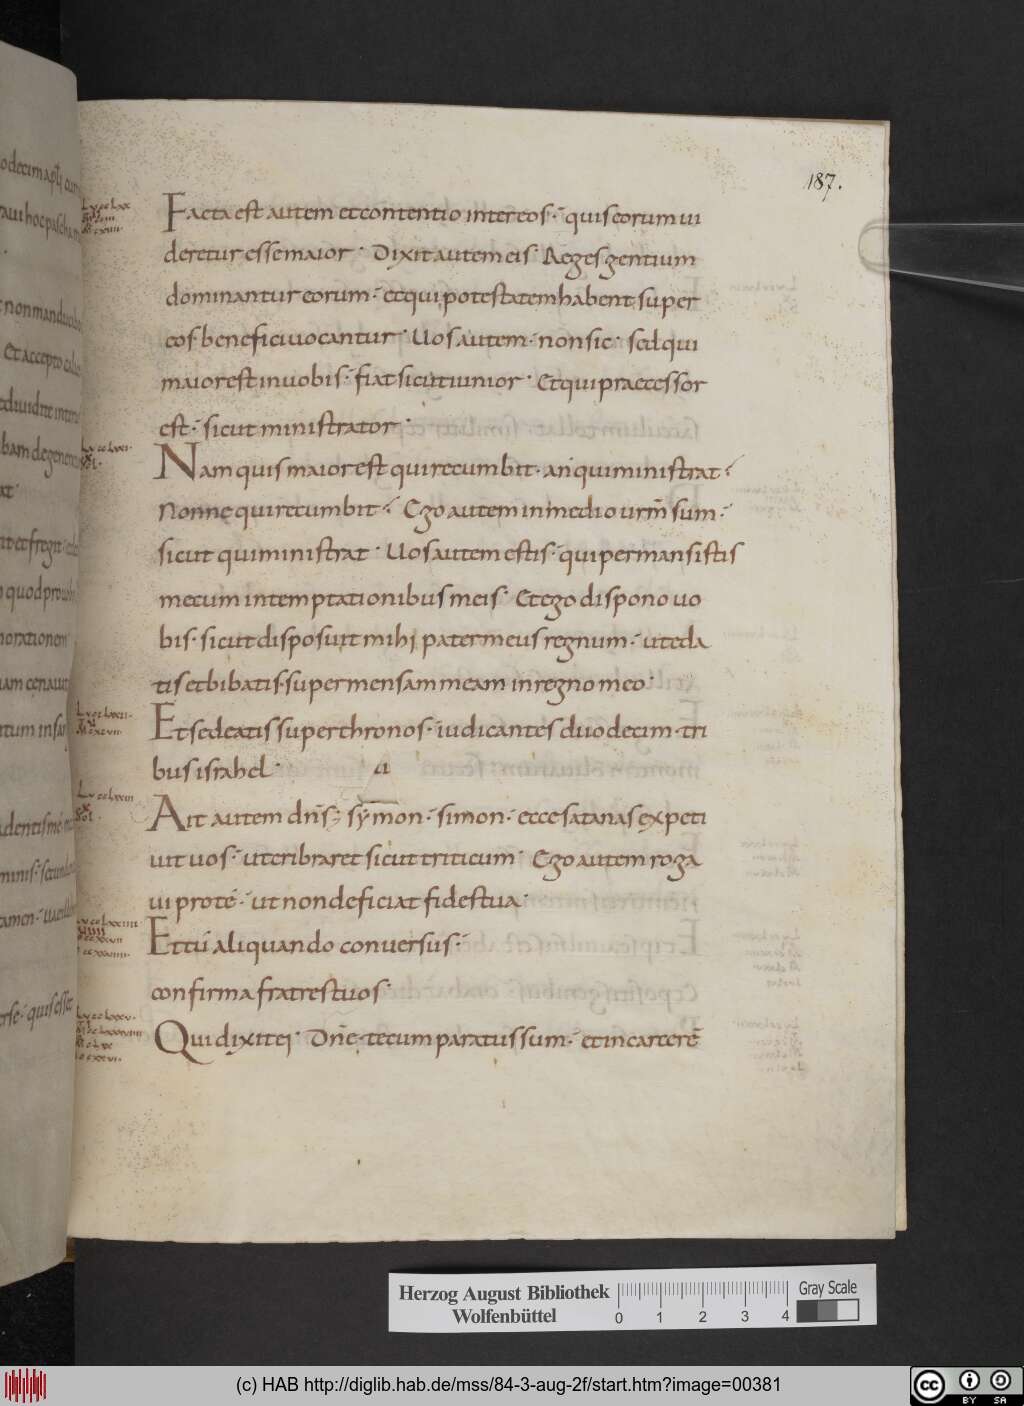 187.
Facta est autem et contentio inter eos · quis eorum ui
deretur esse maior · Dixit autem eis · Reges gentium
dominantur eorum · et qui potestatem habent super
eos · benefici uocantur · Uos autem · non sic · sed qui
maior est in uobis · fiat sicut iunior · Et qui praecessor
est · sicut ministrator ·
Nam quis maior est qui recumbit · an qui ministrat ·
Nonne qui recumbit · Ego autem in medio urm̄ sum ·
sicut qui ministrat · Uos autem estis · qui permansistis
mecum in temptationibus meis · Et ego dispono uo
bis · sicut disposuit mihi pater meus regnum · ut eda
tis et bibatis · super mensam meam in regno meo ·
Et sedeatis super thronos · iudicantes duodecim · tri
bus israhel ·
a
Ait autem dn̄s · symon · simon · ecce satanas expeti
uit uos · ut cribraret sicut triticum · Ego autem roga
ui pro te · ut non deficiat fides tua ·
Et tu aliquando conuersus ·
confirma fratres tuos ·
Qui dixit ei · Dn̄e · tecum paratus sum · et in carcerē
Herzog August Bibliothek
Wolfenbüttel
0 1 2 3 4
Gray Scale
(c) HAB http://diglib.hab.de/mss/84-3-aug-2f/start.htm?image=00381
cc BY SA